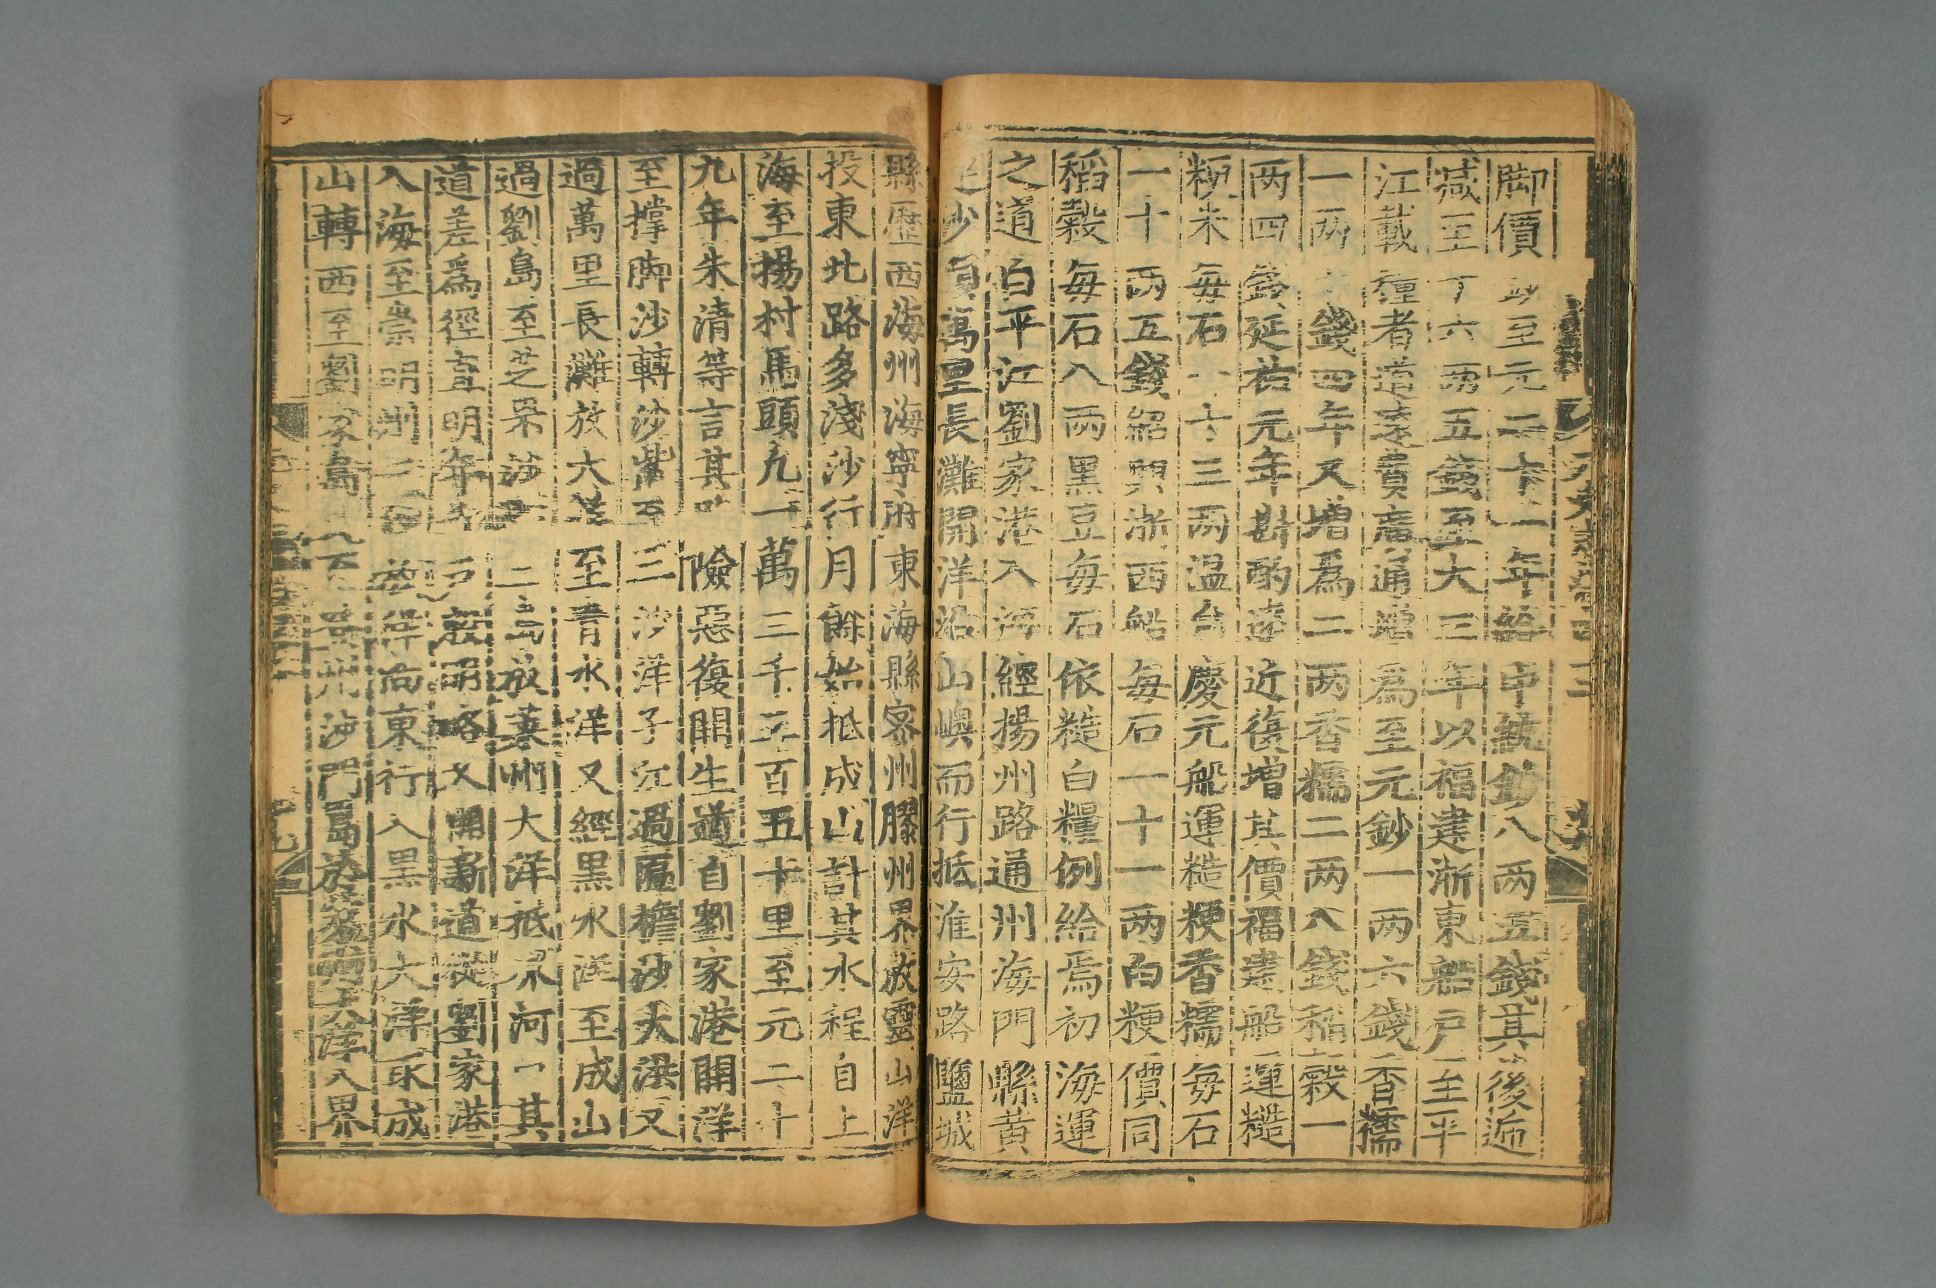 脚價鈔至元二十一年給中統鈔八两五錢其後逓
減至于六两五錢至大三年以福建浙東船户至平
江載糧者道遠費廣通增爲至元鈔一两六錢香糯
一两七錢四年又增爲二两香糯二两八錢稻穀一
两四錢延祐元年斟酌遠近復增其價福建船運糙
粳米每石一十三两溫台慶元船運糙粳香糯每石
一十一两五錢紹興浙西船每石一十一两白粳價同
稻穀每石八两黑豆每石依糙白糧例給焉初海運
之道自平江劉家港入海經揚州路通州海門縣黃
連沙頭萬里長灘開洋沿山嶼而行抵淮安路鹽城
縣歷西海州海寧府東海縣密州膠州界放靈山洋
投東北路多淺沙行月餘始抵成山計其水程自上
海至揚村馬頭凡一萬三千三百五十里至元二十
九年朱清等言其路險惡復開生道自劉家港開洋
至撑脚沙轉沙觜至三沙洋子江過匾檐沙大洪又
過萬里長灘放大洋至青水洋又經黒水洋至成山
過劉島至芝罘沙門二島放萊州大洋抵界河口其
道差爲徑直明年千户殷明略又開新道從劉家港
入海至崇明州三沙放洋向東行入黑水大洋取成
山轉西至劉家島又至登州沙門島於萊州大洋入界